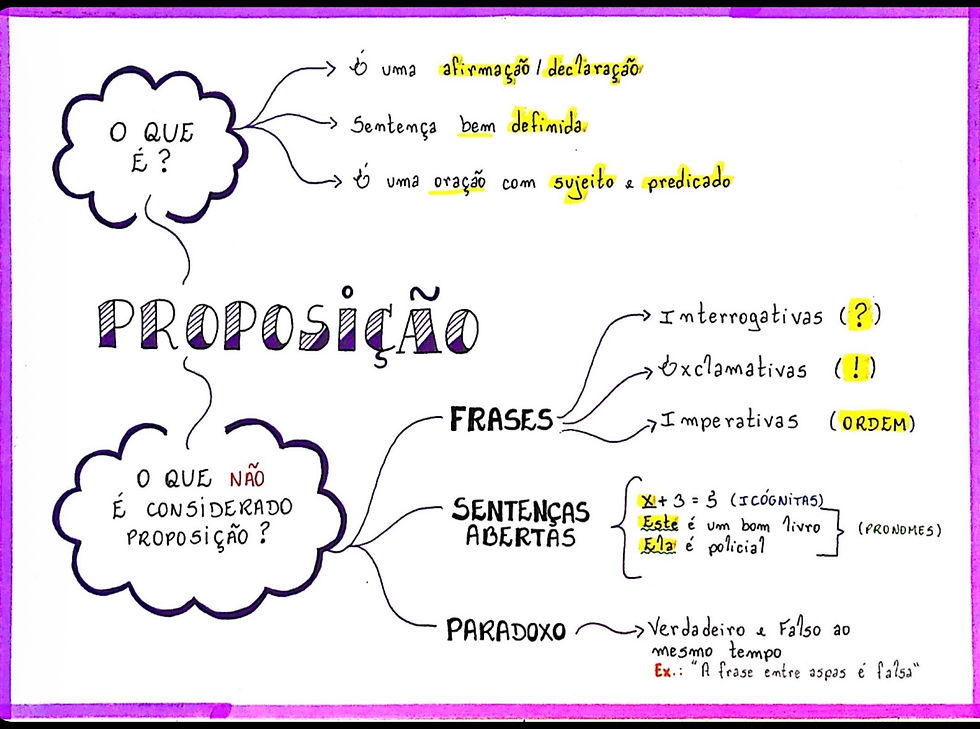 O QUE
É ?
É uma afirmação / declaração
Sentença bem definida
É uma oração com sujeito e predicado
PROPOSIÇÃO
O QUE NÃO
É CONSIDERADO
PROPOSIÇÃO ?
FRASES
Interrogativas (?)
Exclamativas (!)
Imperativas (ORDEM)
SENTENÇAS
ABERTAS
x + 3 = 5 (ICÓGNITAS)
Este é um bom livro
Ela é policial
(PRONOMES)
PARADOXO
Verdadeiro e Falso ao
mesmo tempo
Ex.: "A frase entre aspas é falsa"